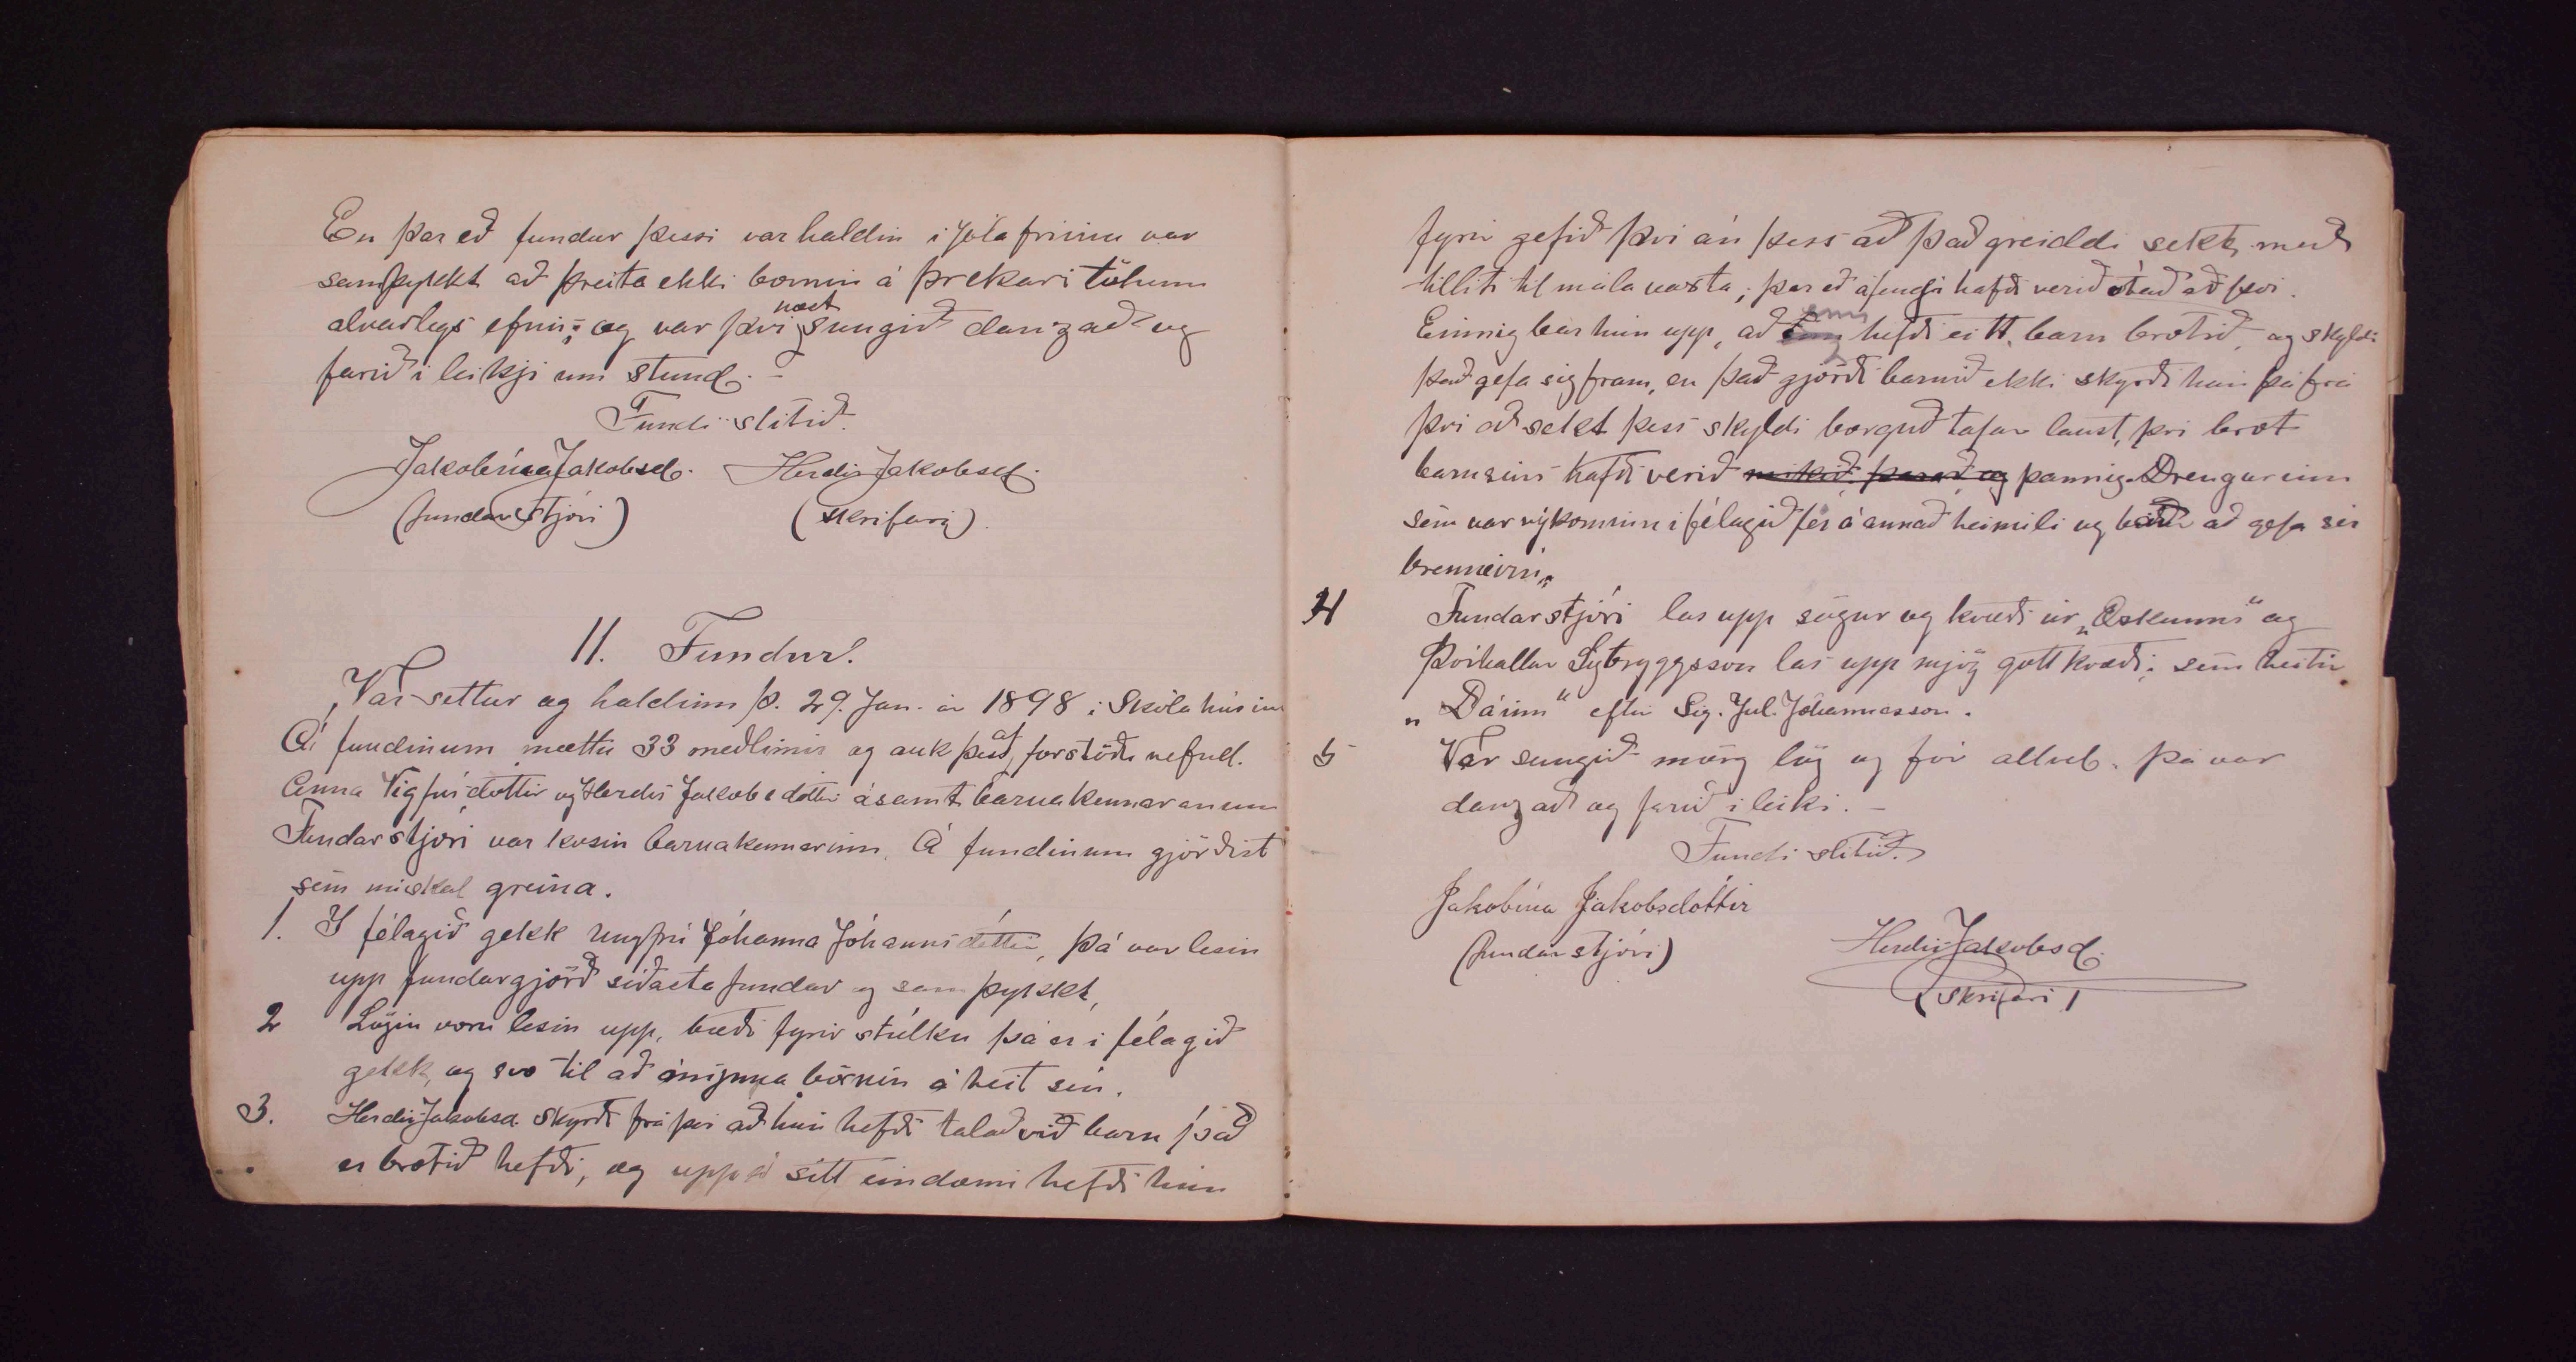 En þar eð fundur þessi var haldin i Jólafriinu var
samþykkt að þreita ekki börnin á frekari tölum
alvarlegs efnis; og var því næst sungið danzað og
farið i leikji um stund. -
Fundi slitið.
Jakobína Jakobsd. Herdis Jakobsd.
(fundarstjóri) (skrifari).
11. Fundur.
Var settur og haldinn þ. 29. Jan. ár 1898 i Skólahúsinu
Á fundinum mættu 33 meðlimir og auk þess af forstöðu nefnd.
Anna Vigfúsdóttir og Herdis Jakobsdóttir ásamt barnakennaranum
Fundarstjóri var kosin barnakennarinn. Á fundinum gjörðist
sem nú skal greina.
1. Í félagið gekk ungfrú Jóhanna Jóhannsdóttir, þá var lesin
upp fundargjörð siðasta fundar og samþykkt,
2 Lögin voru lesin upp, bæði fyrir stúlku þá er i félagið
gekk, og svo til að áminna börnin á heit sín.
3. Herdis Jakobsd. skyrði frá þvi að hún hefði talað við barn það
er brotið hefði, og upp á sitt eindæmi hefði hún
fyrir gefið þvi án þess að það greiddi sekt, með
tilliti til mála vaxta; þar eð áfengi hafði verið otað að þvi.
Einnig bar hún upp, að enn hefði eitt barn brotið, og skyldi
það gefa sig fram, en það gjörði barnið ekki skyrði hún þá frá
þvi að sekt þess skyldi borguð tafar laust, þvi brot
barnsins hafði verið mikið, þar að og þannig. Drengurinn
sem var nýkominn i félagið fór á annað heimili og bað að gefa sér
brennivín.
4 Fundarstjóri las upp sögur og kvæði úr „Öskunni“ og
Þórhallur Sigtryggsson las upp mjög gott kvæði; sem heitir
„Dáinn“ eftir Sig. Júl. Jóhannesson.
5 Var sungið mörg lög og fór allvel. Þá var
danzað og farið i leiki. -
Fundi slitið.
Jakobína Jakobsdóttir
(fundarstjóri) Herdis Jakobsd.
(Skrifari)